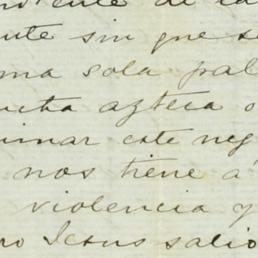 de la
nte sin que se
una sola pal
azteca o
inar este neg
nos tiene á
violencia y
ro Jesus salio